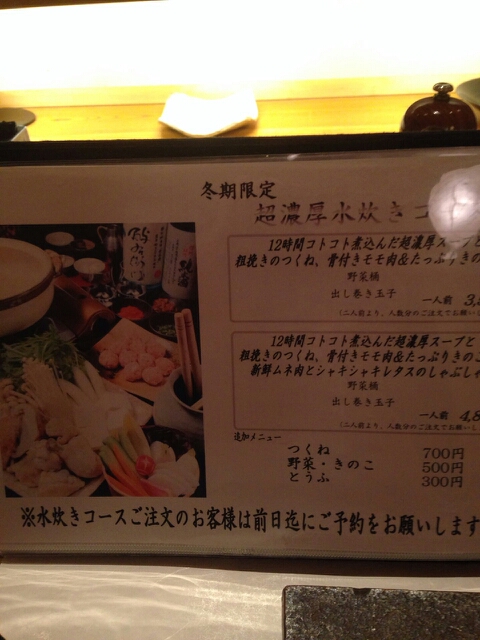 冬期限定
超濃厚水炊きコ
12時間コトコト煮込んだ超濃厚スープと
粗挽きのつくね、骨付きモモ肉&たっぷりきの
野菜桶
出し巻き玉子
一人前 3,
(二人前より、人数分のご注文でお願
12時間コトコト煮込んだ超濃厚スープと
粗挽きのつくね、骨付きモモ肉&たっぷりきのこ
新鮮ムネ肉とシャキシャキレタスのしゃぶし
野菜桶
出し巻き玉子
一人前 4,8
(二人前より、人数分のご注文でお願い
追加メニュー
つくね 700円
野菜・きのこ 500円
とうふ 300円
※水炊きコースご注文のお客様は前日迄にご予約をお願いします